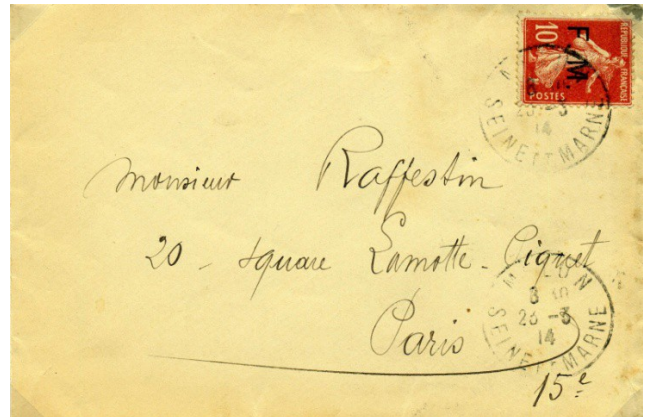 REPUBLIQUE FRANÇAISE
10
POSTES
F M
23 -3
14
SEINE ET MARNE
Monsieur Raffestin
20 - Square Lamotte-Piquet
Paris
15e
M UN
8
23 -3
14
SEINE ET MARNE